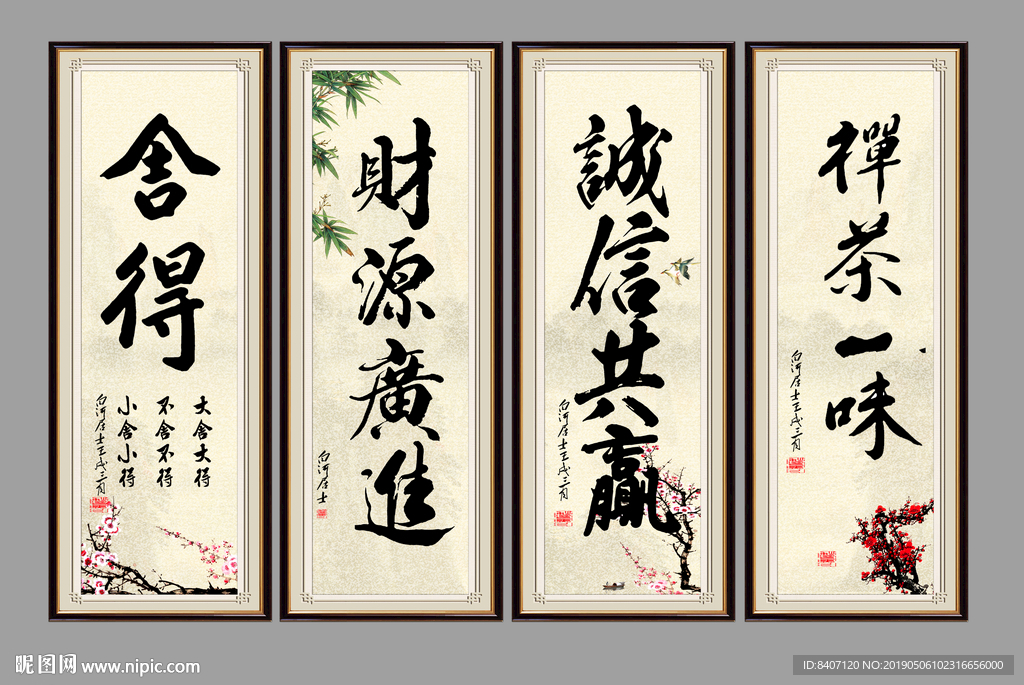 舍得
大舍大得
不舍不得
小舍小得
白河居士壬戌三月
財源廣進
白河居士
誠信共贏
白河居士壬戌三月
禪茶一味
白河居士壬戌三月
昵图网 www.nipic.com
ID:8407120 NO:20190506102316656000